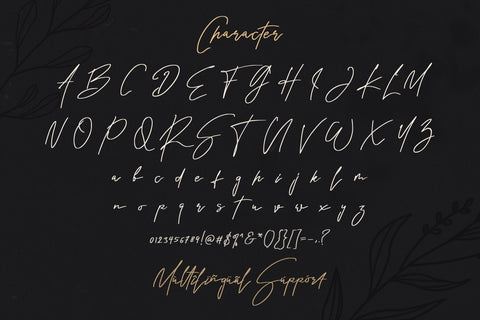 Character
A B C D E F G H I J K L M
N O P Q R S T U V W X Y Z
a b c d e f g h i j k l m
n o p q r s t u v w x y z
0123456789!@#$%^&*(){}[]=-.,?
Multilingual Support